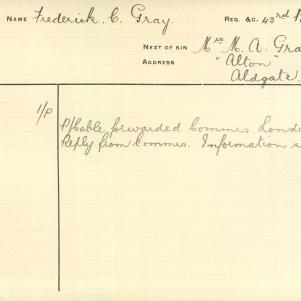 NAME Frederick. C. Gray. REG. &C. 43rd
NEXT OF KIN Mrs M. A. Gra
ADDRESS "Alton"
Aldgate
1/P
P/Cable forwarded Commrs Lond
Reply from Commrs. Information s